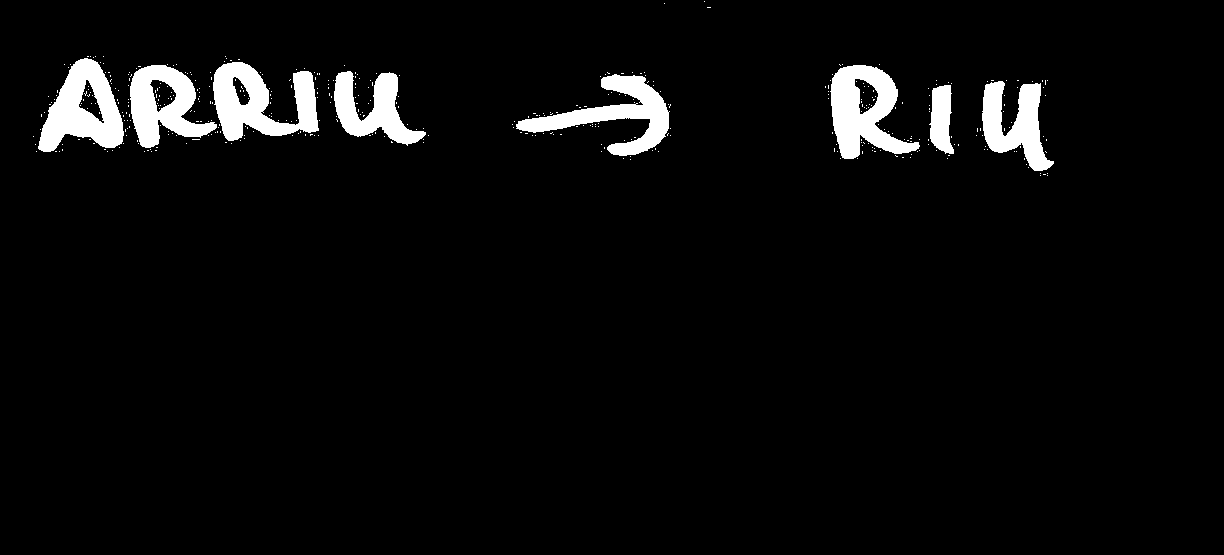 ARRIU → RIU